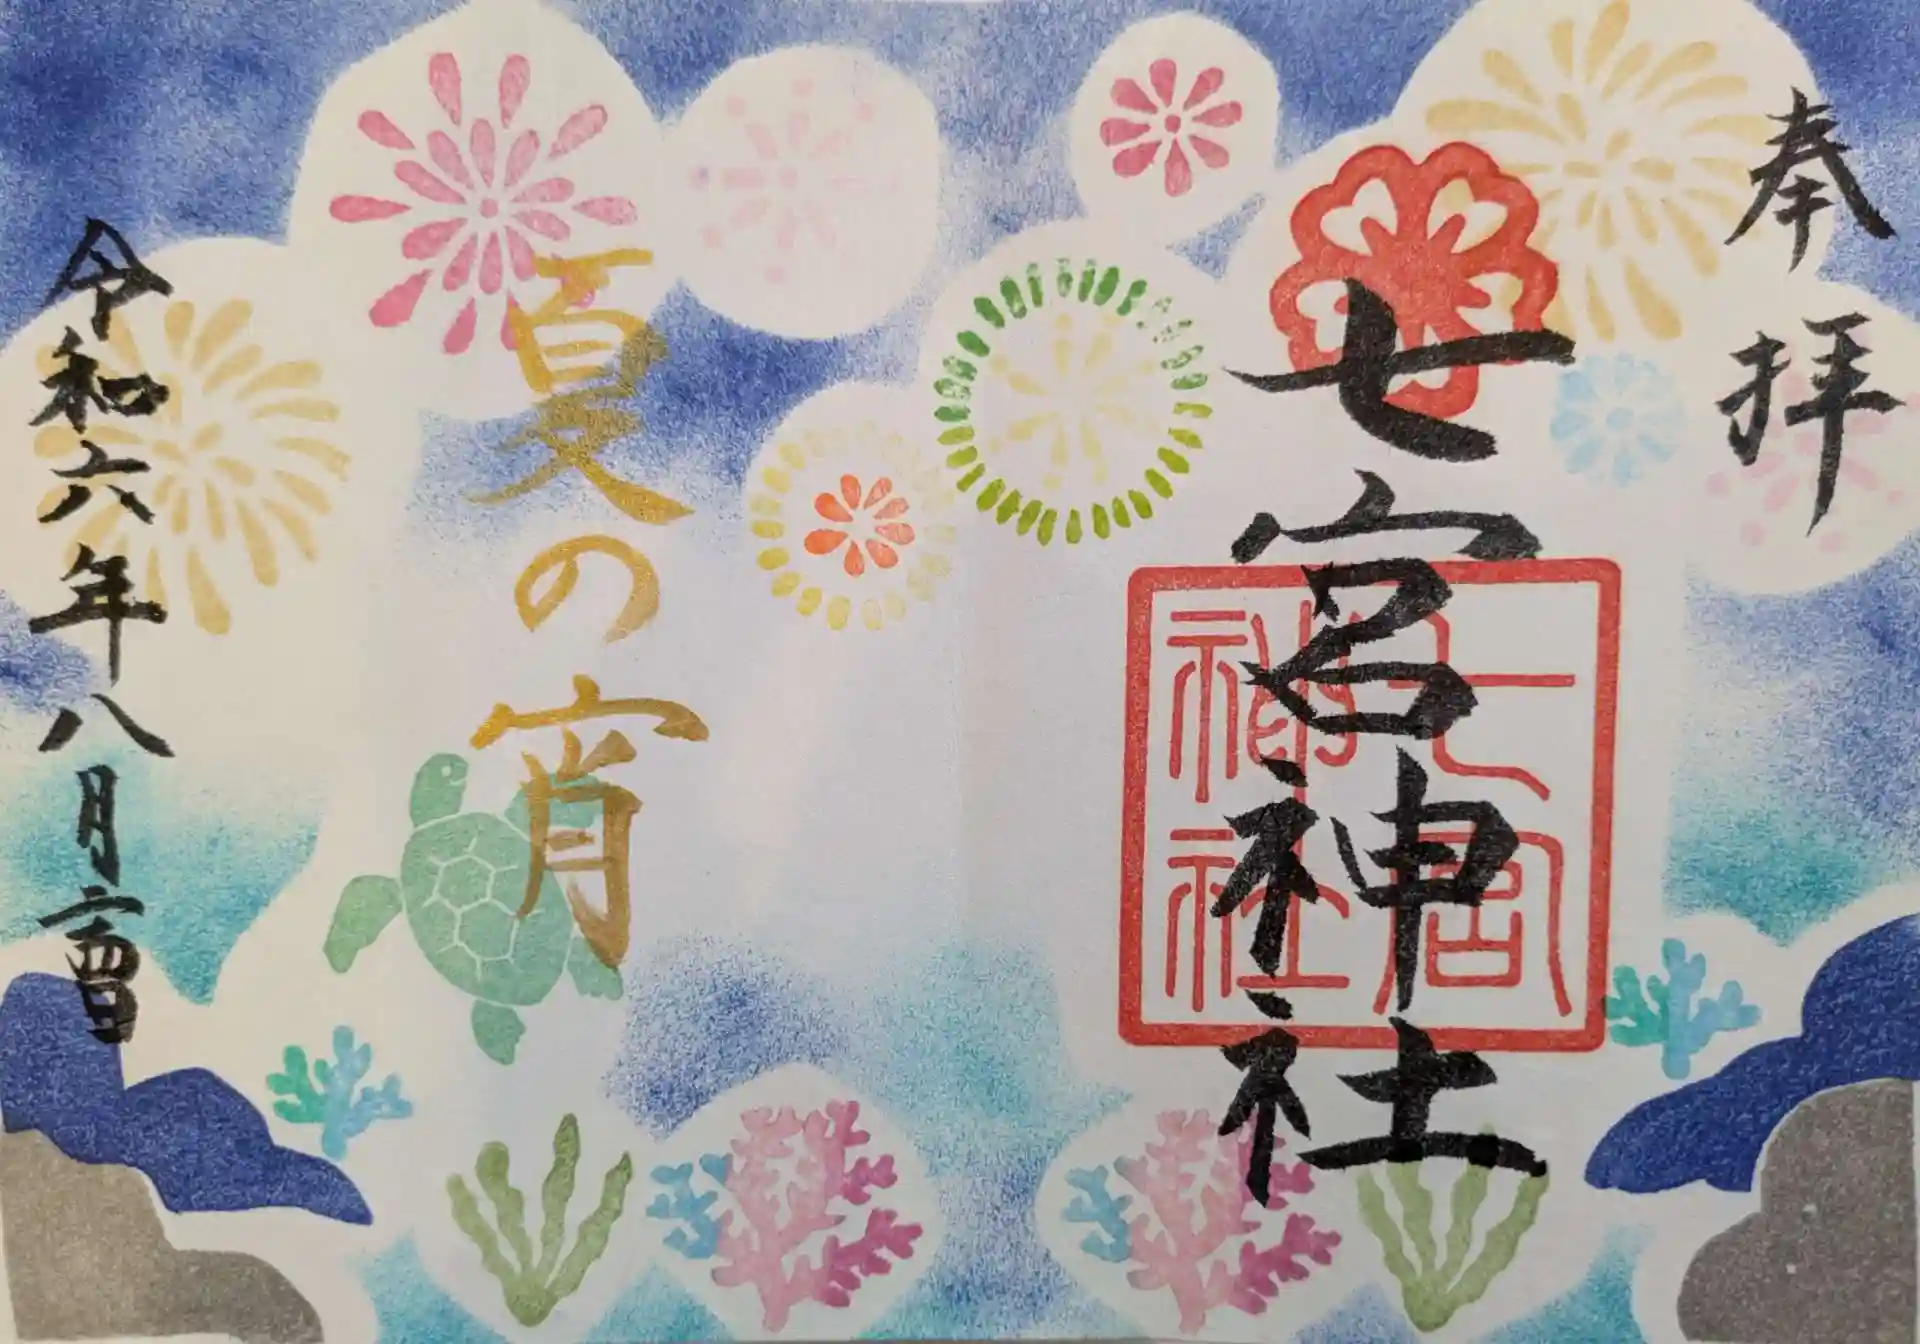 奉拝
七宮神社
七宮
神社
夏の宵
令和六年八月二十四日